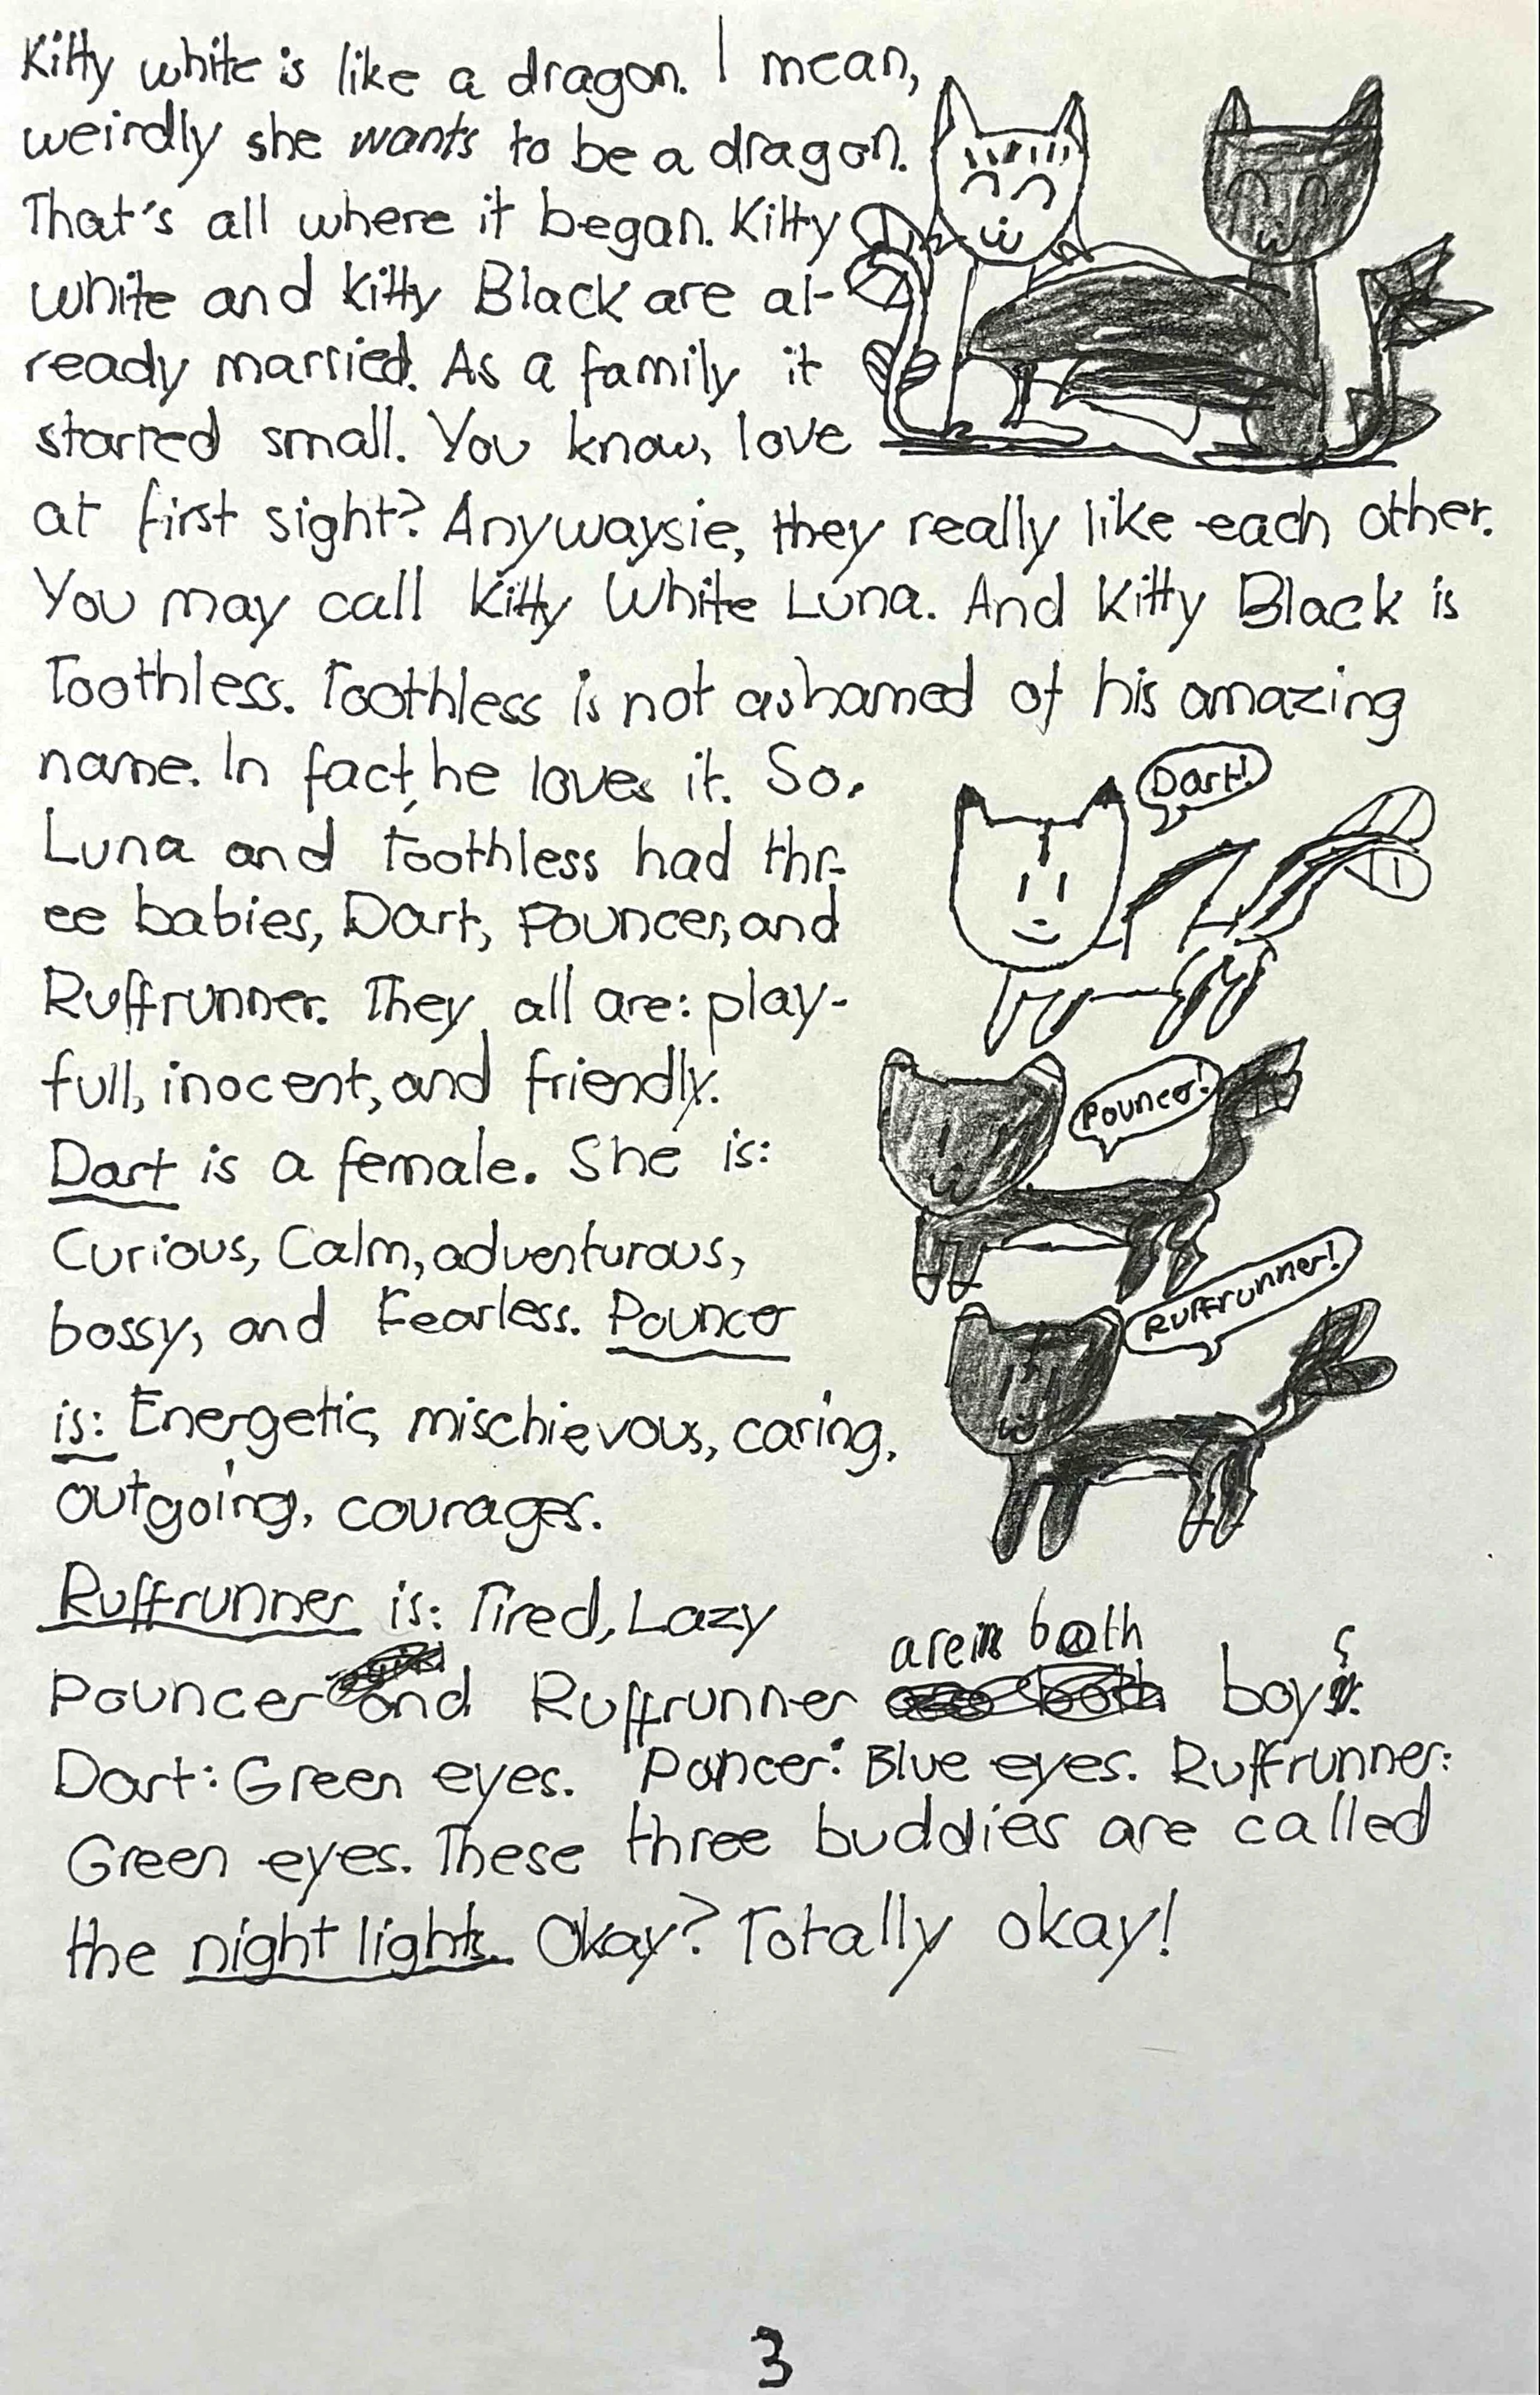 Kitty white is like a dragon. I mean,
weirdly she wants to be a dragon.
That's all where it began. Kitty
white and Kitty Black are al-
ready married. As a family it
starred small. You know, love
at first sight? Anywaysie, they really like each other.
You may call Kitty White Luna. And Kitty Black is
Toothless. Toothless is not ashamed of his amazing
name. In fact, he loves it. So,
Dart!
Luna and Toothless had thr-
ee babies, Dart, Pouncer, and
Ruffrunner. They all are: play-
full, inocent, and friendly.
Pouncer!
Dart is a female. She is:
Curious, Calm, adventurous,
Ruffrunner!
bossy, and Fearless. Pouncer
is: Energetic, mischievous, caring,
outgoing, courages.
Ruffrunner is: Tired, Lazy
are both
Pouncer and Ruffrunner boys.
Dart: Green eyes. Poncer: Blue eyes. Ruffrunner:
Green eyes. These three buddies are called
the night lights. Okay? Totally okay!
3